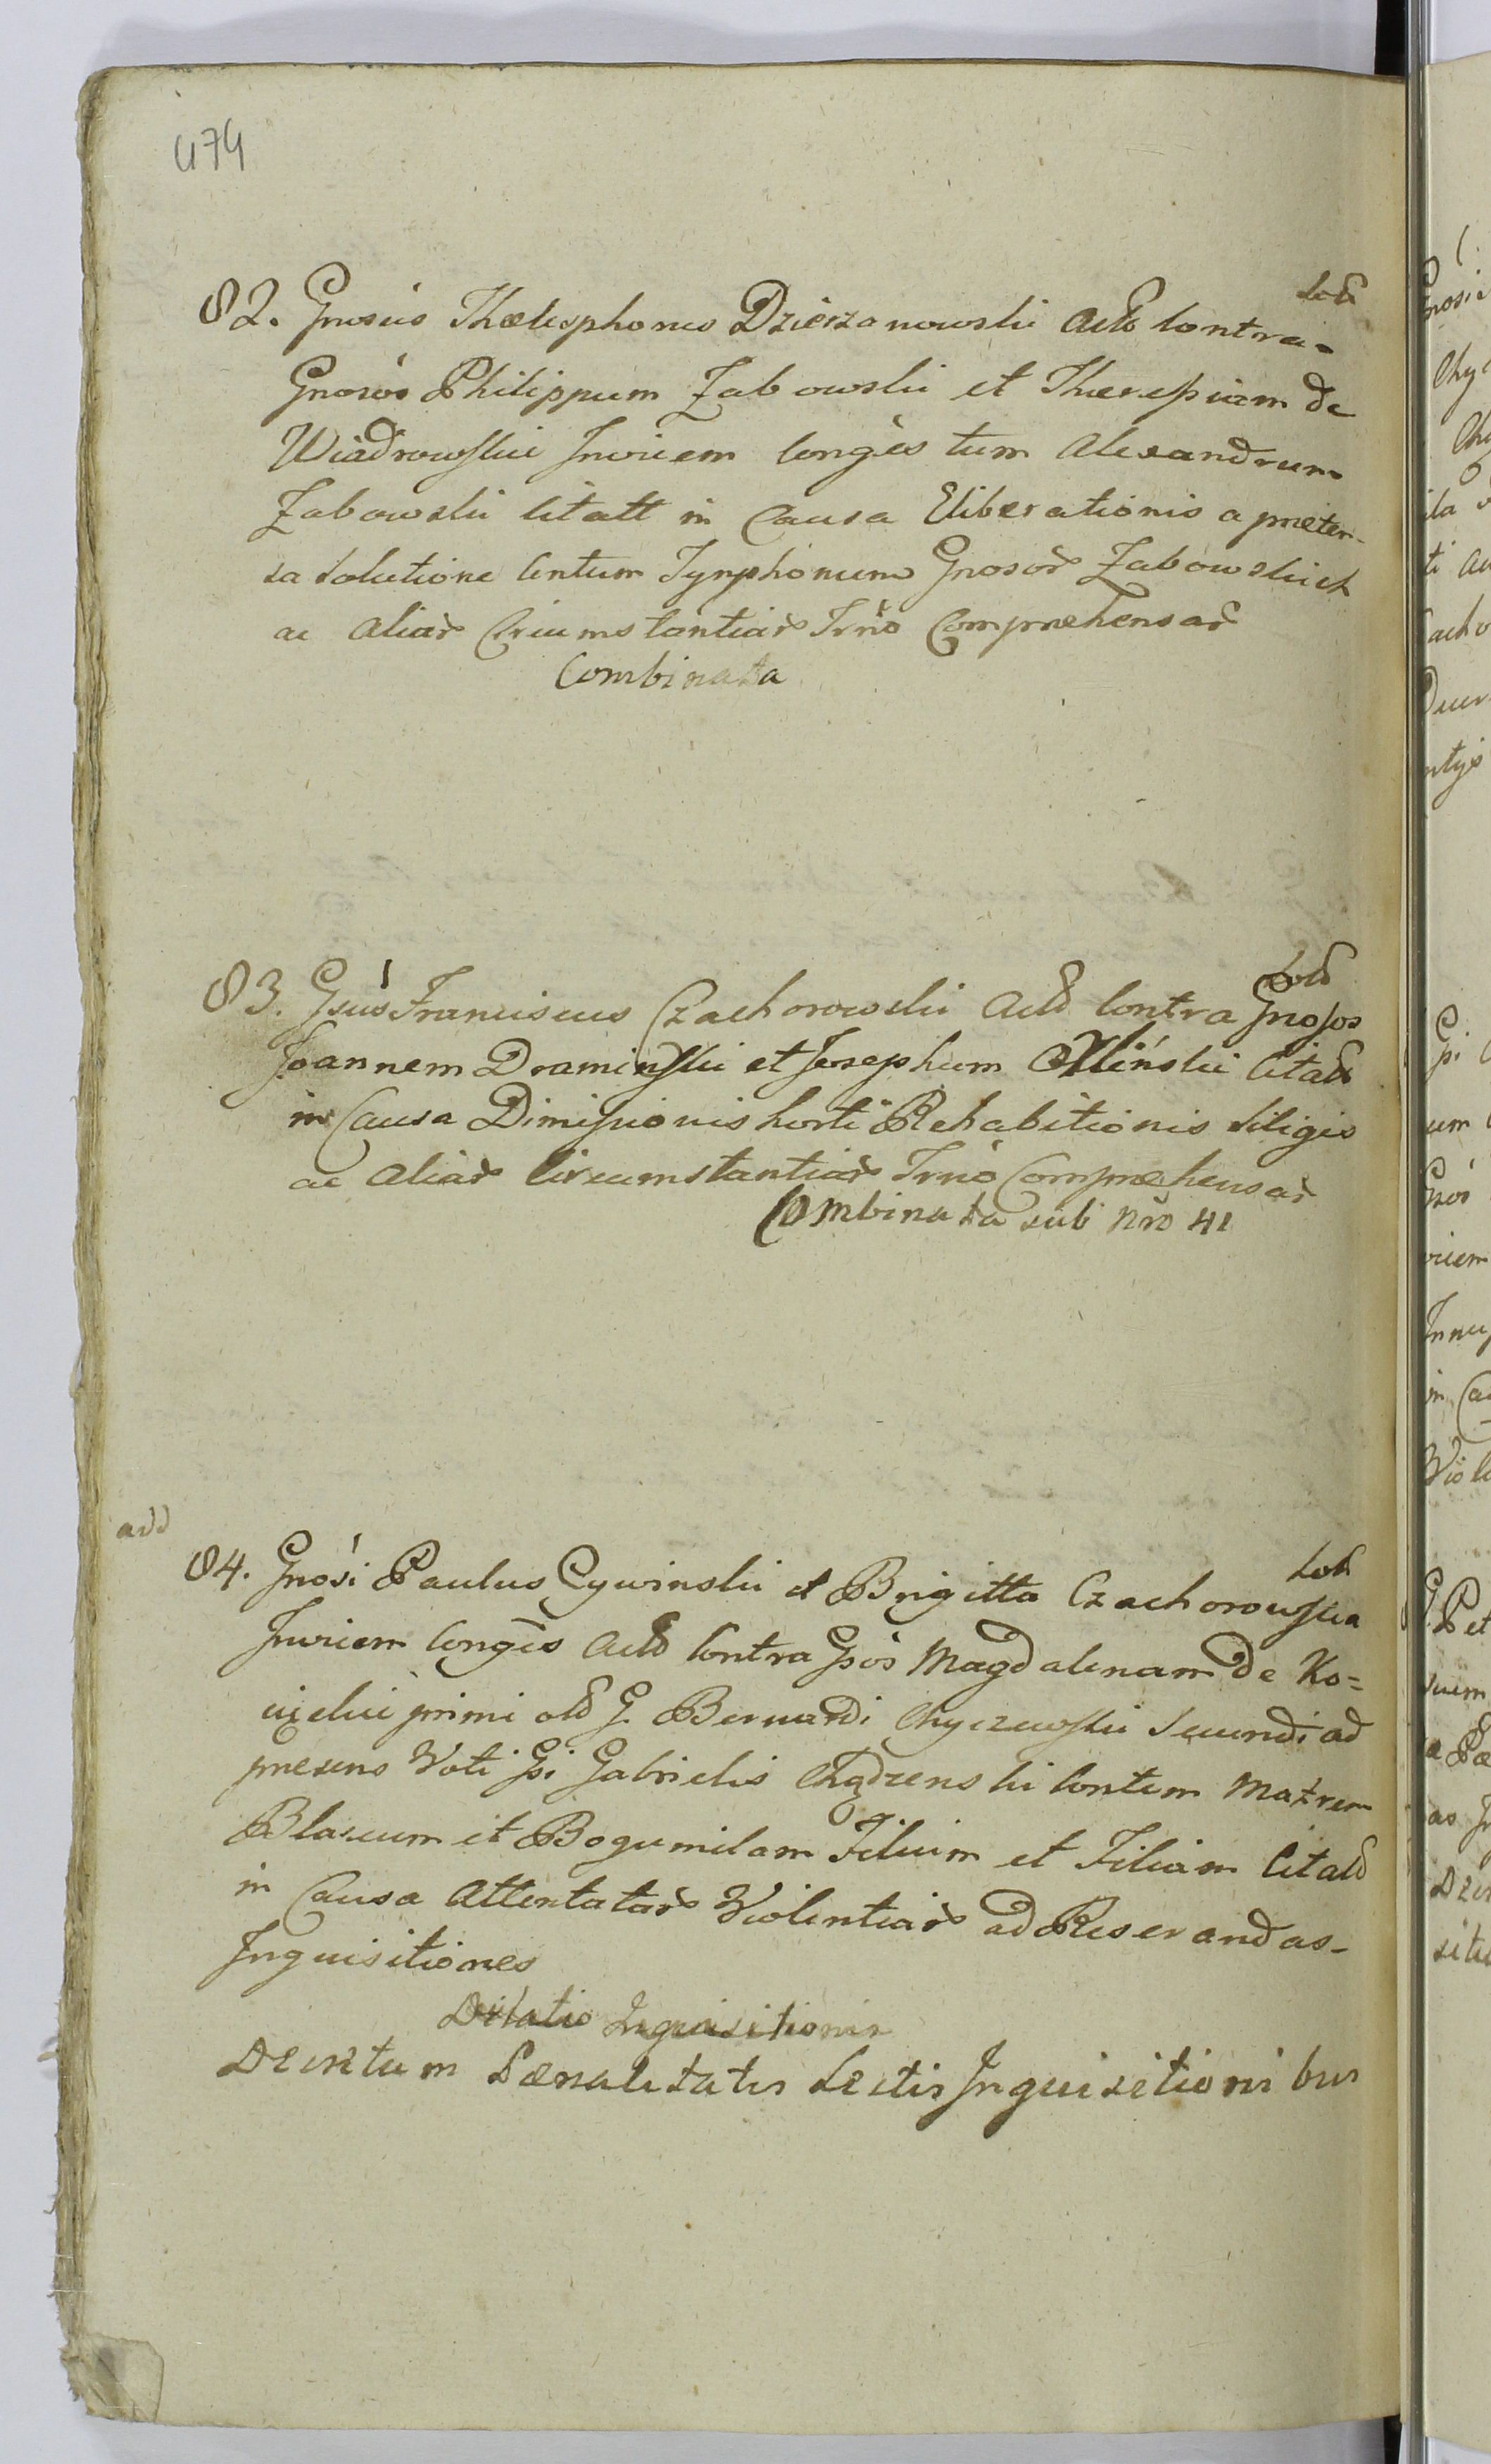 474
82. Gnosus Thelesphorus Dzierzanowski Act Contra
Gnosos Philippum Zabowski et Theressiam de
Wiadrowskie Invicem Conges tum Alexandrum
Zabowski Citatt in Causa Eliberationis a præten-
sa Solutione Centum Tynphonum Gnosor Zabowskich
ac aliar Circumstantiar Trno Compræhensar
Combinata
83. Gsus Franciscus Czachorowski Act Contra Gnosos
Joannem Draminski et Josephum Olliński Citat
in Causa Dimissionis horti Rehabitionis Siligis
ac aliar Circumstantiar Trno Compræhensar
Combinata sub Nro 41
add
84. Gnosi Paulus Cywinski et Brigitta Czachorowska
Invicem Conges Act Contra Gsos Magdalenam de Ko=
primi G. Bernardi Chyczewski Secundi ad
præsens Voti Gsi Gabrielis Chądzenski Contem Matrem
Blasium et Bogumilam Filium et Filiam Citat
in Causa Attentatar Violentiar ad Reserandas
Inquisitiones
Dilatio Inquisitionis
Decretum Pænalitatis Lectis Inquisitionibus